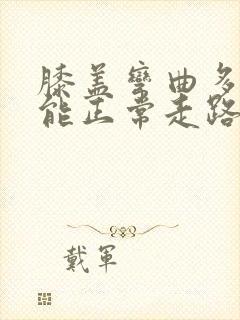 膝盖弯曲多
能正常走路
戴軍